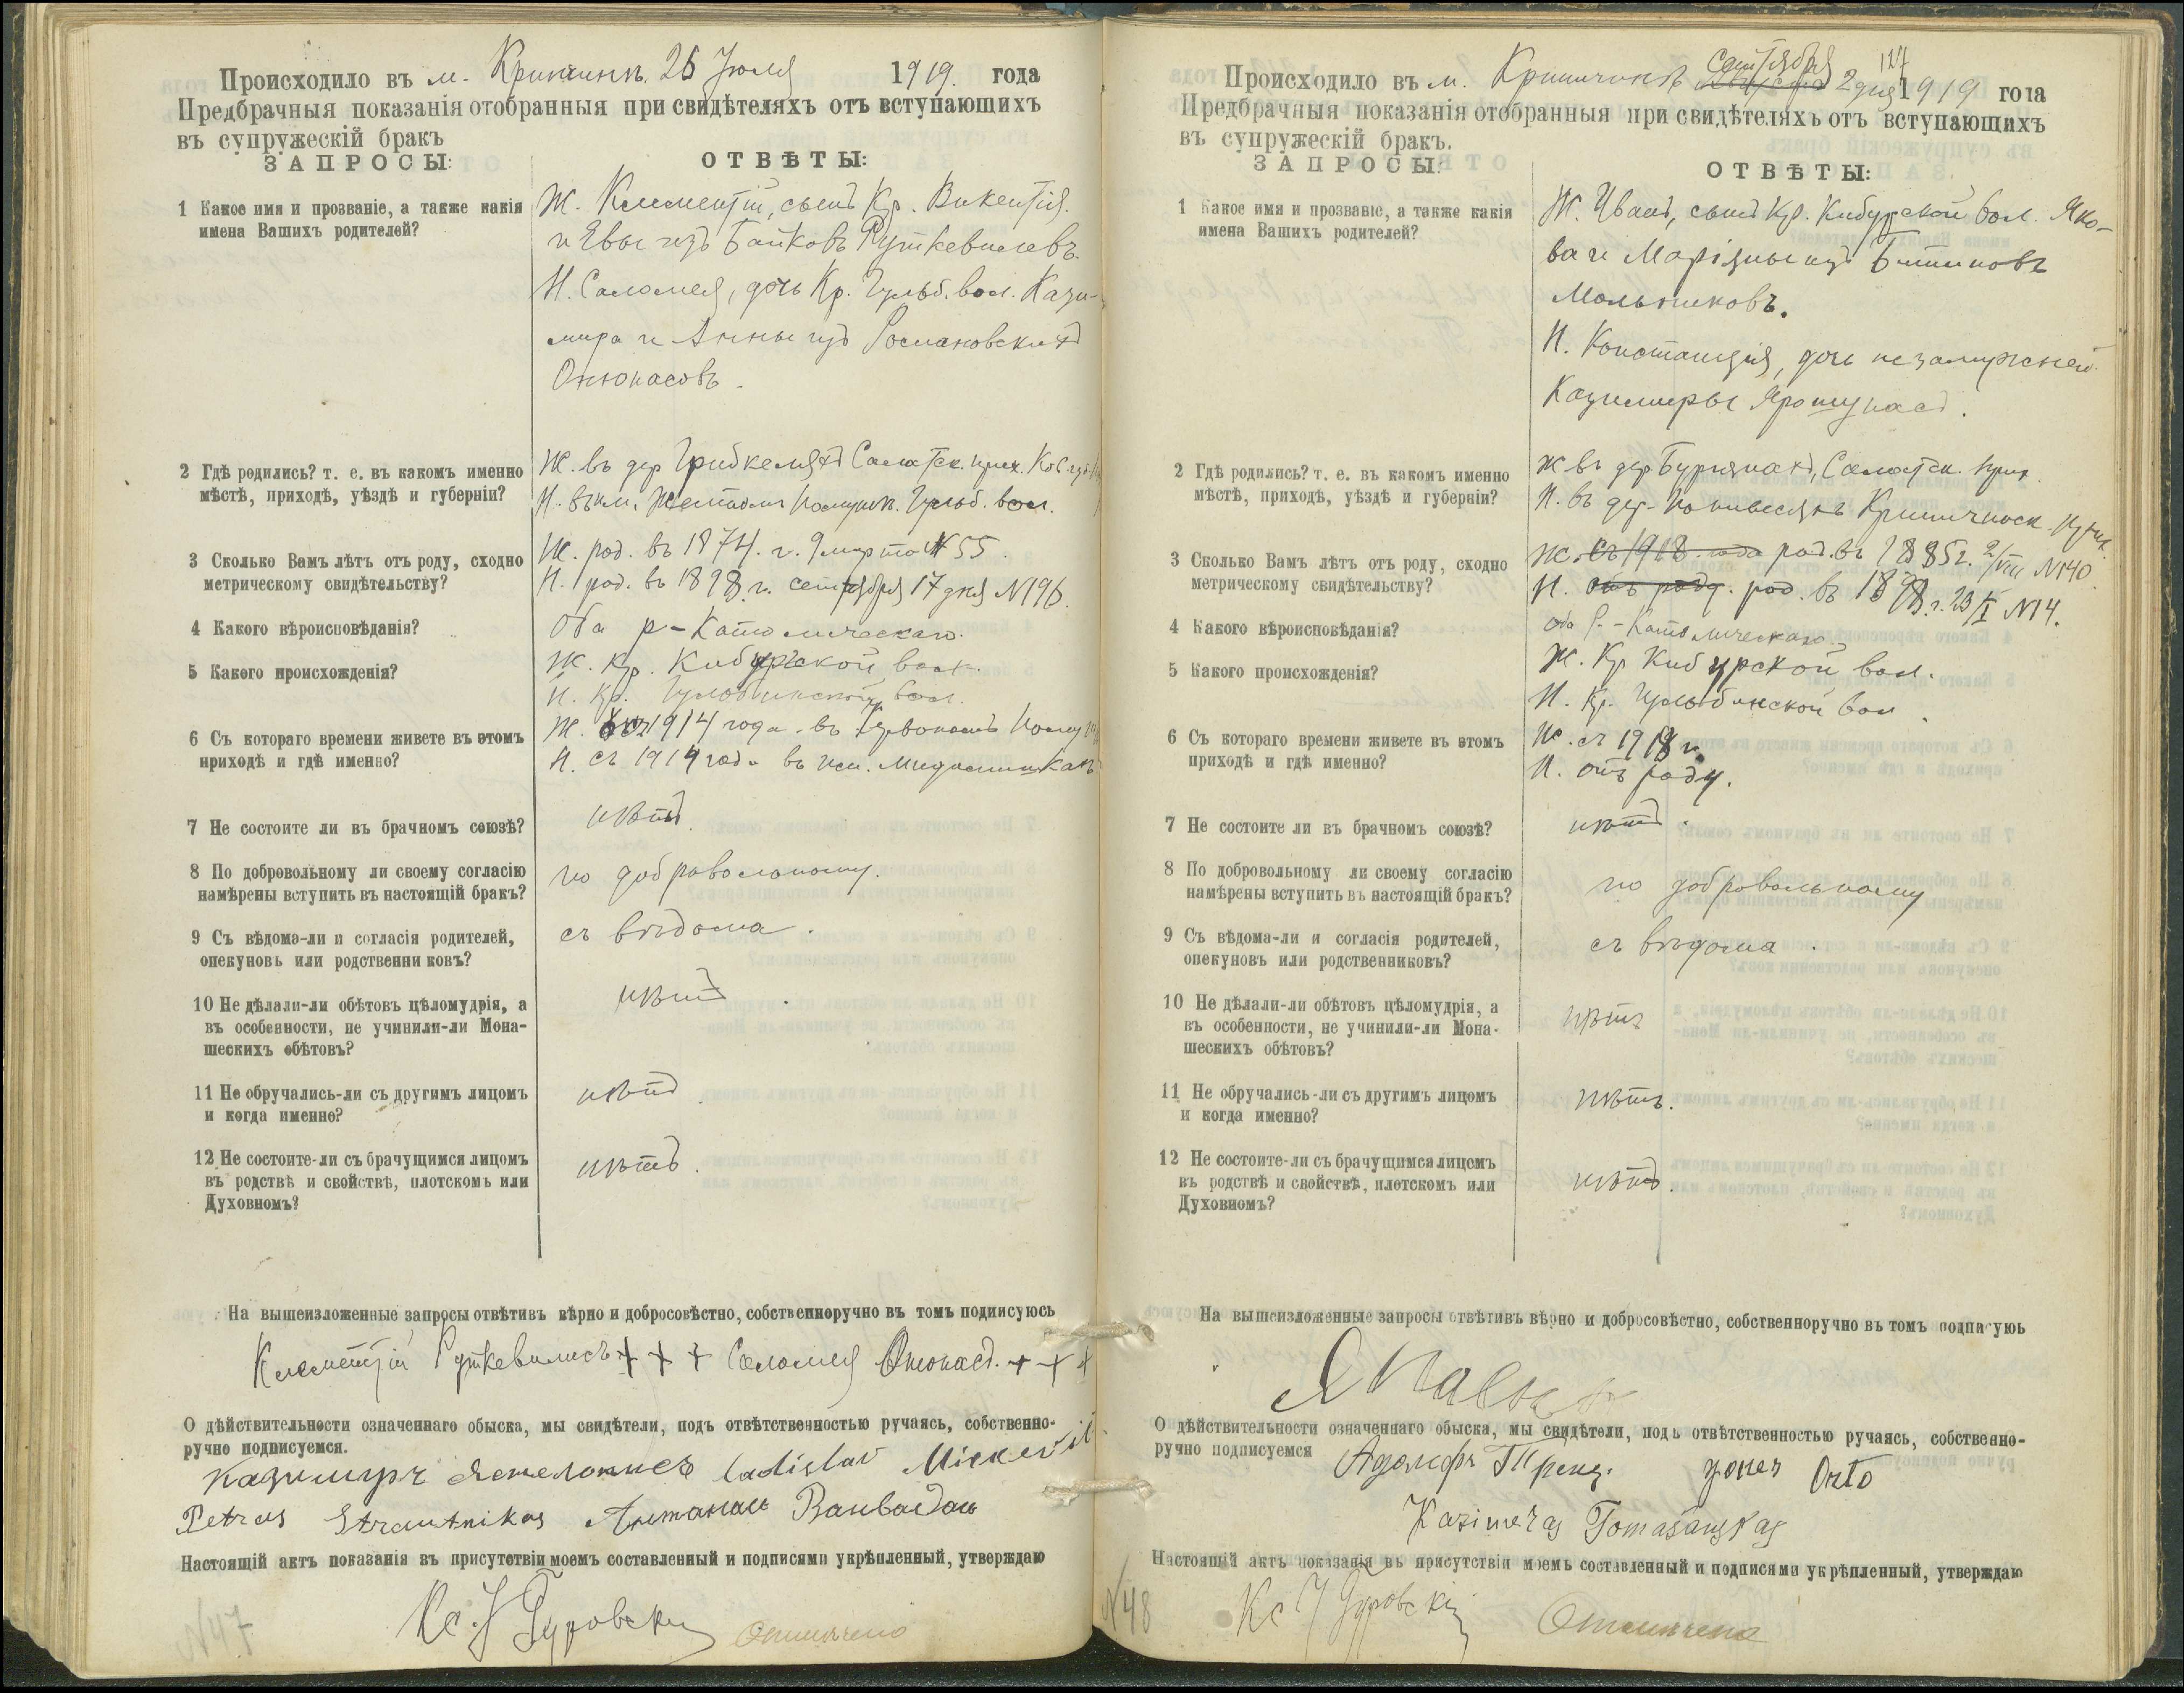 Происходило въ м. Кринчинъ. 26 Іюля 1919 года
Предбрачныя показанія отобранныя при свидѣтеляхъ отъ вступающихъ
въ супружескій бракъ
ЗАПРОСЫ:
ОТВѢТЫ:
1 Какое имя и прозваніе, а также какія
имена Вашихъ родителей?
Ж. Климентій, сынъ Кр. Викентія
и Евы изъ Байковъ Руткевичевъ.
Н. Саломея, дочь Кр. Гульб. вол. Кази-
мира и Анны изъ Росмановскихъ
Онюнасовъ.
2 Гдѣ родились? т. е. въ какомъ именно
мѣстѣ, приходѣ, уѣздѣ и губерніи?
Ж. въ дер Салатск. прих.
Н. Гульб. вол.
3 Сколько Вамъ лѣтъ отъ роду, сходно
метрическому свидѣтельству?
Ж. род. въ 1874. г. 9 марта № 55.
Н. род. въ 1898 г. сентября 17 дня №196.
4 Какого вѣроисповѣданія?
Оба р-Католическаго.
5 Какого происхожденія?
Ж. Кр. Кибурской вол.
Н. Кр. Гульбинской вол.
6 Съ котораго времени живете въ этомъ
приходѣ и гдѣ именно?
Ж. 1914 года въ
Н. съ 1914 года въ им.
7 Не состоите ли въ брачномъ союзѣ?
нѣтъ.
8 По добровольному ли своему согласію
намѣрены вступить въ настоящій бракъ?
по добровольному.
9 Съ вѣдома-ли и согласія родителей,
опекуновъ или родственниковъ?
съ вѣдома.
10 Не дѣлали-ли обѣтовъ цѣломудрія, а
въ особенности, не учинили-ли Мона-
шескихъ обѣтовъ?
нѣтъ.
11 Не обручались-ли съ другимъ лицомъ
и когда именно?
нѣтъ.
12 Не состоите-ли съ брачущимся лицомъ
въ родствѣ и свойствѣ, плотскомъ или
Духовномъ?
нѣтъ.
На вышеизложенные запросы отвѣтивъ вѣрно и добросовѣстно, собственноручно въ томъ подписуюсь
Климентій Руткевичъ + + + Саломея Онюнасъ. + + +
О дѣйствительности означеннаго обыска, мы свидѣтели, подъ отвѣтственностью ручаясь, собственно-
ручно подписуемся.
Казимиръ ladislav Mickevič
Petras Strautnikas Антанась
Настоящій актъ показанія въ присутствіи моемъ составленный и подписями укрѣпленный, утверждаю
Кс. Гуровскій Отмѣчено
№47
127
Происходило въ м. Кринчинъ Сентября 2 дня 1919 года
Предбрачныя показанія отобранныя при свидѣтеляхъ отъ вступающихъ
въ супружескій бракъ.
ЗАПРОСЫ:
ОТВѢТЫ:
1 Какое имя и прозваніе, а также какія
имена Вашихъ родителей?
Ж. Иванъ, сынъ Кр. Кибурской вол. Яко-
ва и Маріянны изъ
Мальниковъ.
Н. Констанція, дочь незамужней
Казимиры Ярошунасъ.
2 Гдѣ родились? т. е. въ какомъ именно
мѣстѣ, приходѣ, уѣздѣ и губерніи?
Ж въ дер Салатск. прих.
Н. въ дер. Кринчинск. прих.
3 Сколько Вамъ лѣтъ отъ роду, сходно
метрическому свидѣтельству?
Ж. съ 1918 года род. въ 1885 г. 2/VIII №140.
Н. отъ роду. род. въ 1898 г. 23/I №14.
4 Какого вѣроисповѣданія?
оба Р.-Католическаго.
5 Какого происхожденія?
Ж. Кр Кибурской вол.
Н. Кр. Гульбинской вол.
6 Съ котораго времени живете въ этомъ
приходѣ и гдѣ именно?
Ж. съ 1918 г.
Н. отъ роду.
7 Не состоите ли въ брачномъ союзѣ?
нѣтъ.
8 По добровольному ли своему согласію
намѣрены вступить въ настоящій бракъ?
по добровольному
9 Съ вѣдома-ли и согласія родителей,
опекуновъ или родственниковъ?
съ вѣдома.
10 Не дѣлали-ли обѣтовъ цѣломудрія, а
въ особенности, не учинили-ли Мона-
шескихъ обѣтовъ?
нѣтъ
11 Не обручались-ли съ другимъ лицомъ
и когда именно?
нѣтъ.
12 Не состоите-ли съ брачущимся лицомъ
въ родствѣ и свойствѣ, плотскомъ или
Духовномъ?
нѣтъ.
На вышеизложенные запросы отвѣтивъ вѣрно и добросовѣстно, собственноручно въ томъ подписуюь
О дѣйствительности означеннаго обыска, мы свидѣтели, подъ отвѣтственностью ручаясь, собственно-
ручно подписуемся
Адольфъ
Kazimeras Tomašauskas
Настоящій актъ показанія въ присутствіи моемъ составленный и подписями укрѣпленный, утверждаю
№48 Кс Гуровскій Отмѣчено